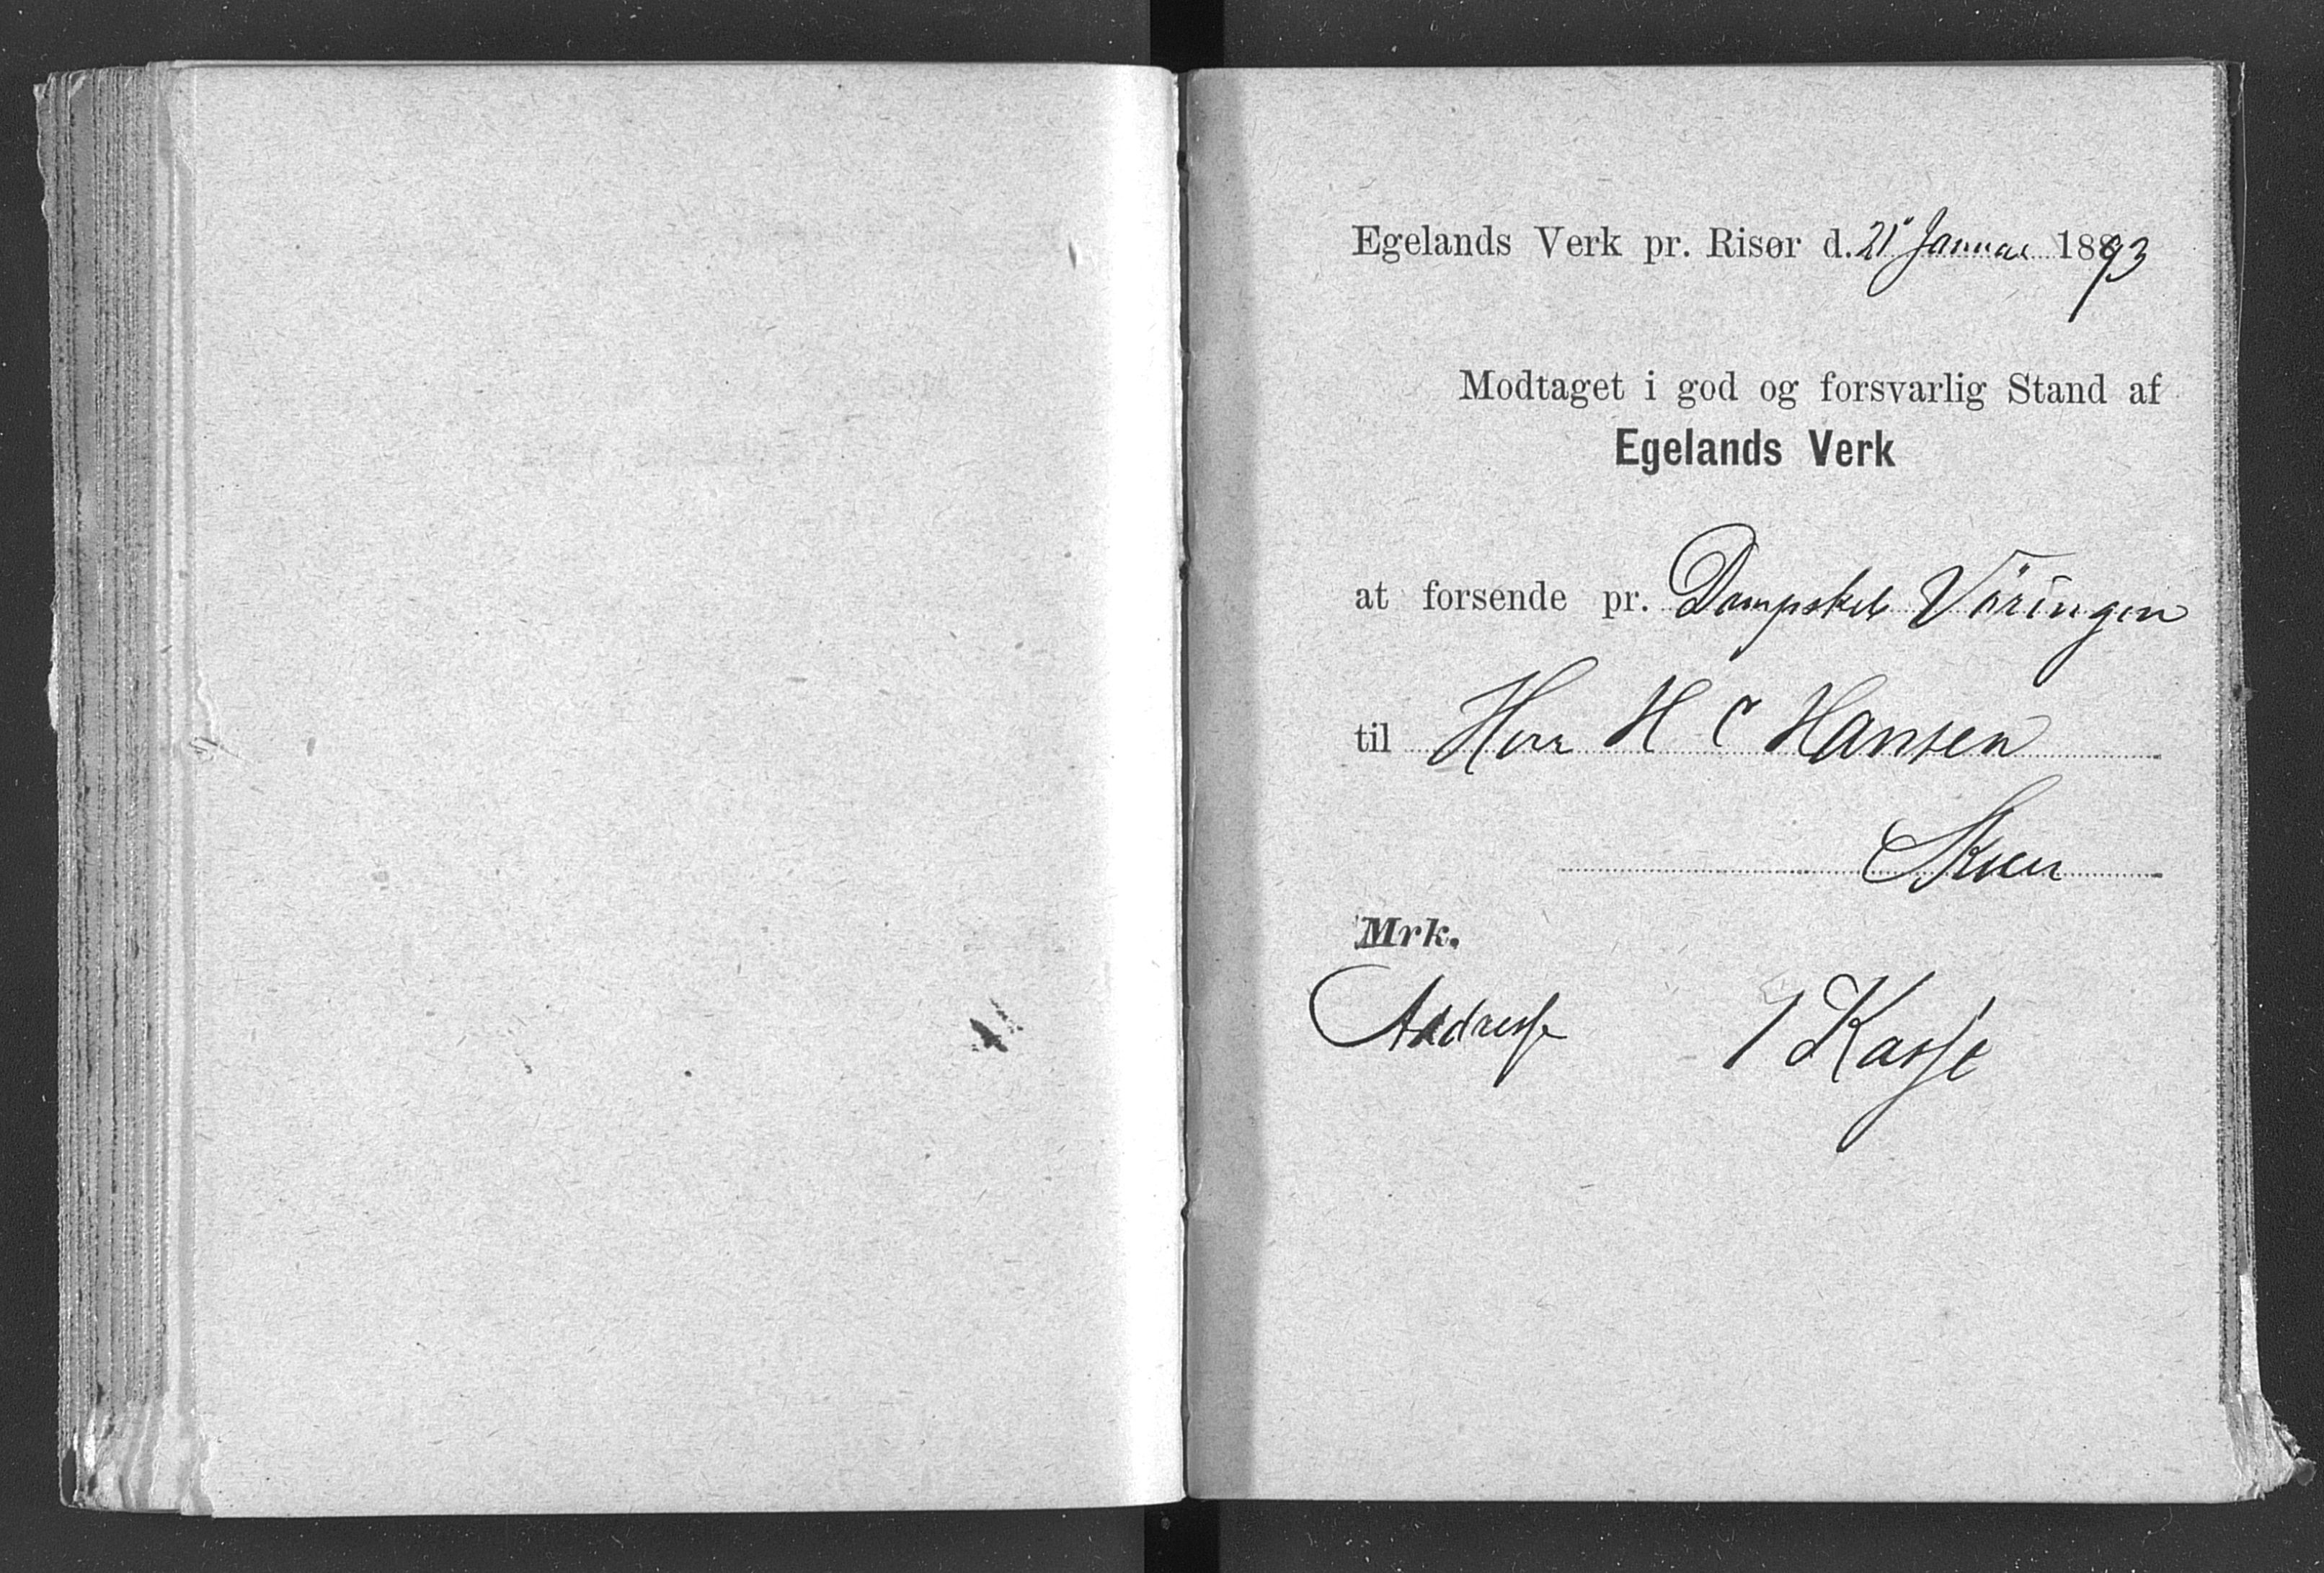 Egelands Verk pr. Risør d. 21 Januar 1893
Modtaget i god og forsvarlig Stand af
Egelands Verk
at forsende pr. Dampskib Vöringen
til Herr H C Hansen
Skien
Mrk.
Addresse 1 Kasse